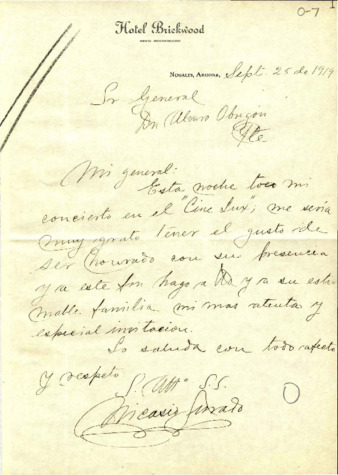 O-7
Hotel Brickwood
Nogales, Arizona, Sept. 25 de 1919
Sr General
Dn Alvaro Obregón
Pte
Mi general:
Esta noche toco mi
concierto en el "Cine Lux"; me sería
muy grato tener el gusto de
ser honrado con su presencia
y a este fin hago a Ud y a su esti
mable familia mi mas atenta y
especial invitacion.
Lo saluda con todo afecto
y respeto
S. Atto S.S.
Nicasio Jurado